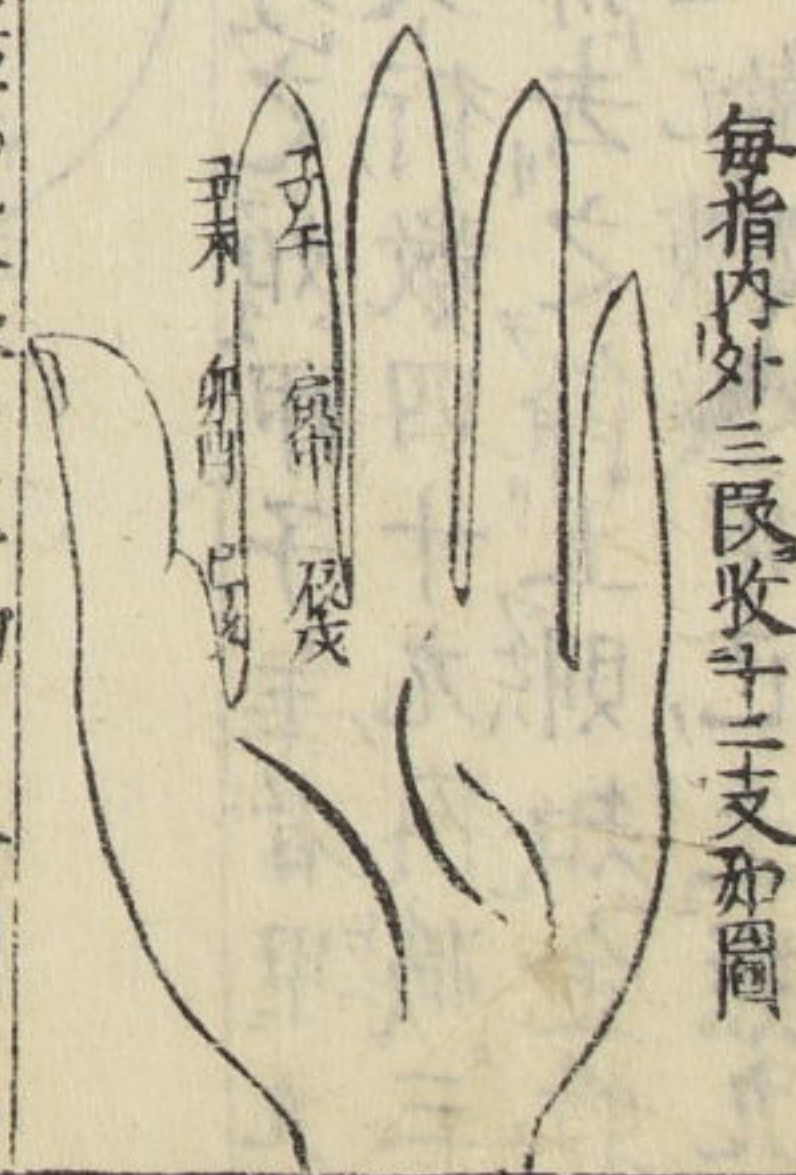 每指內外三段收十二支那圖
子午
寅申
辰戌
丑未
卯酉
巳亥